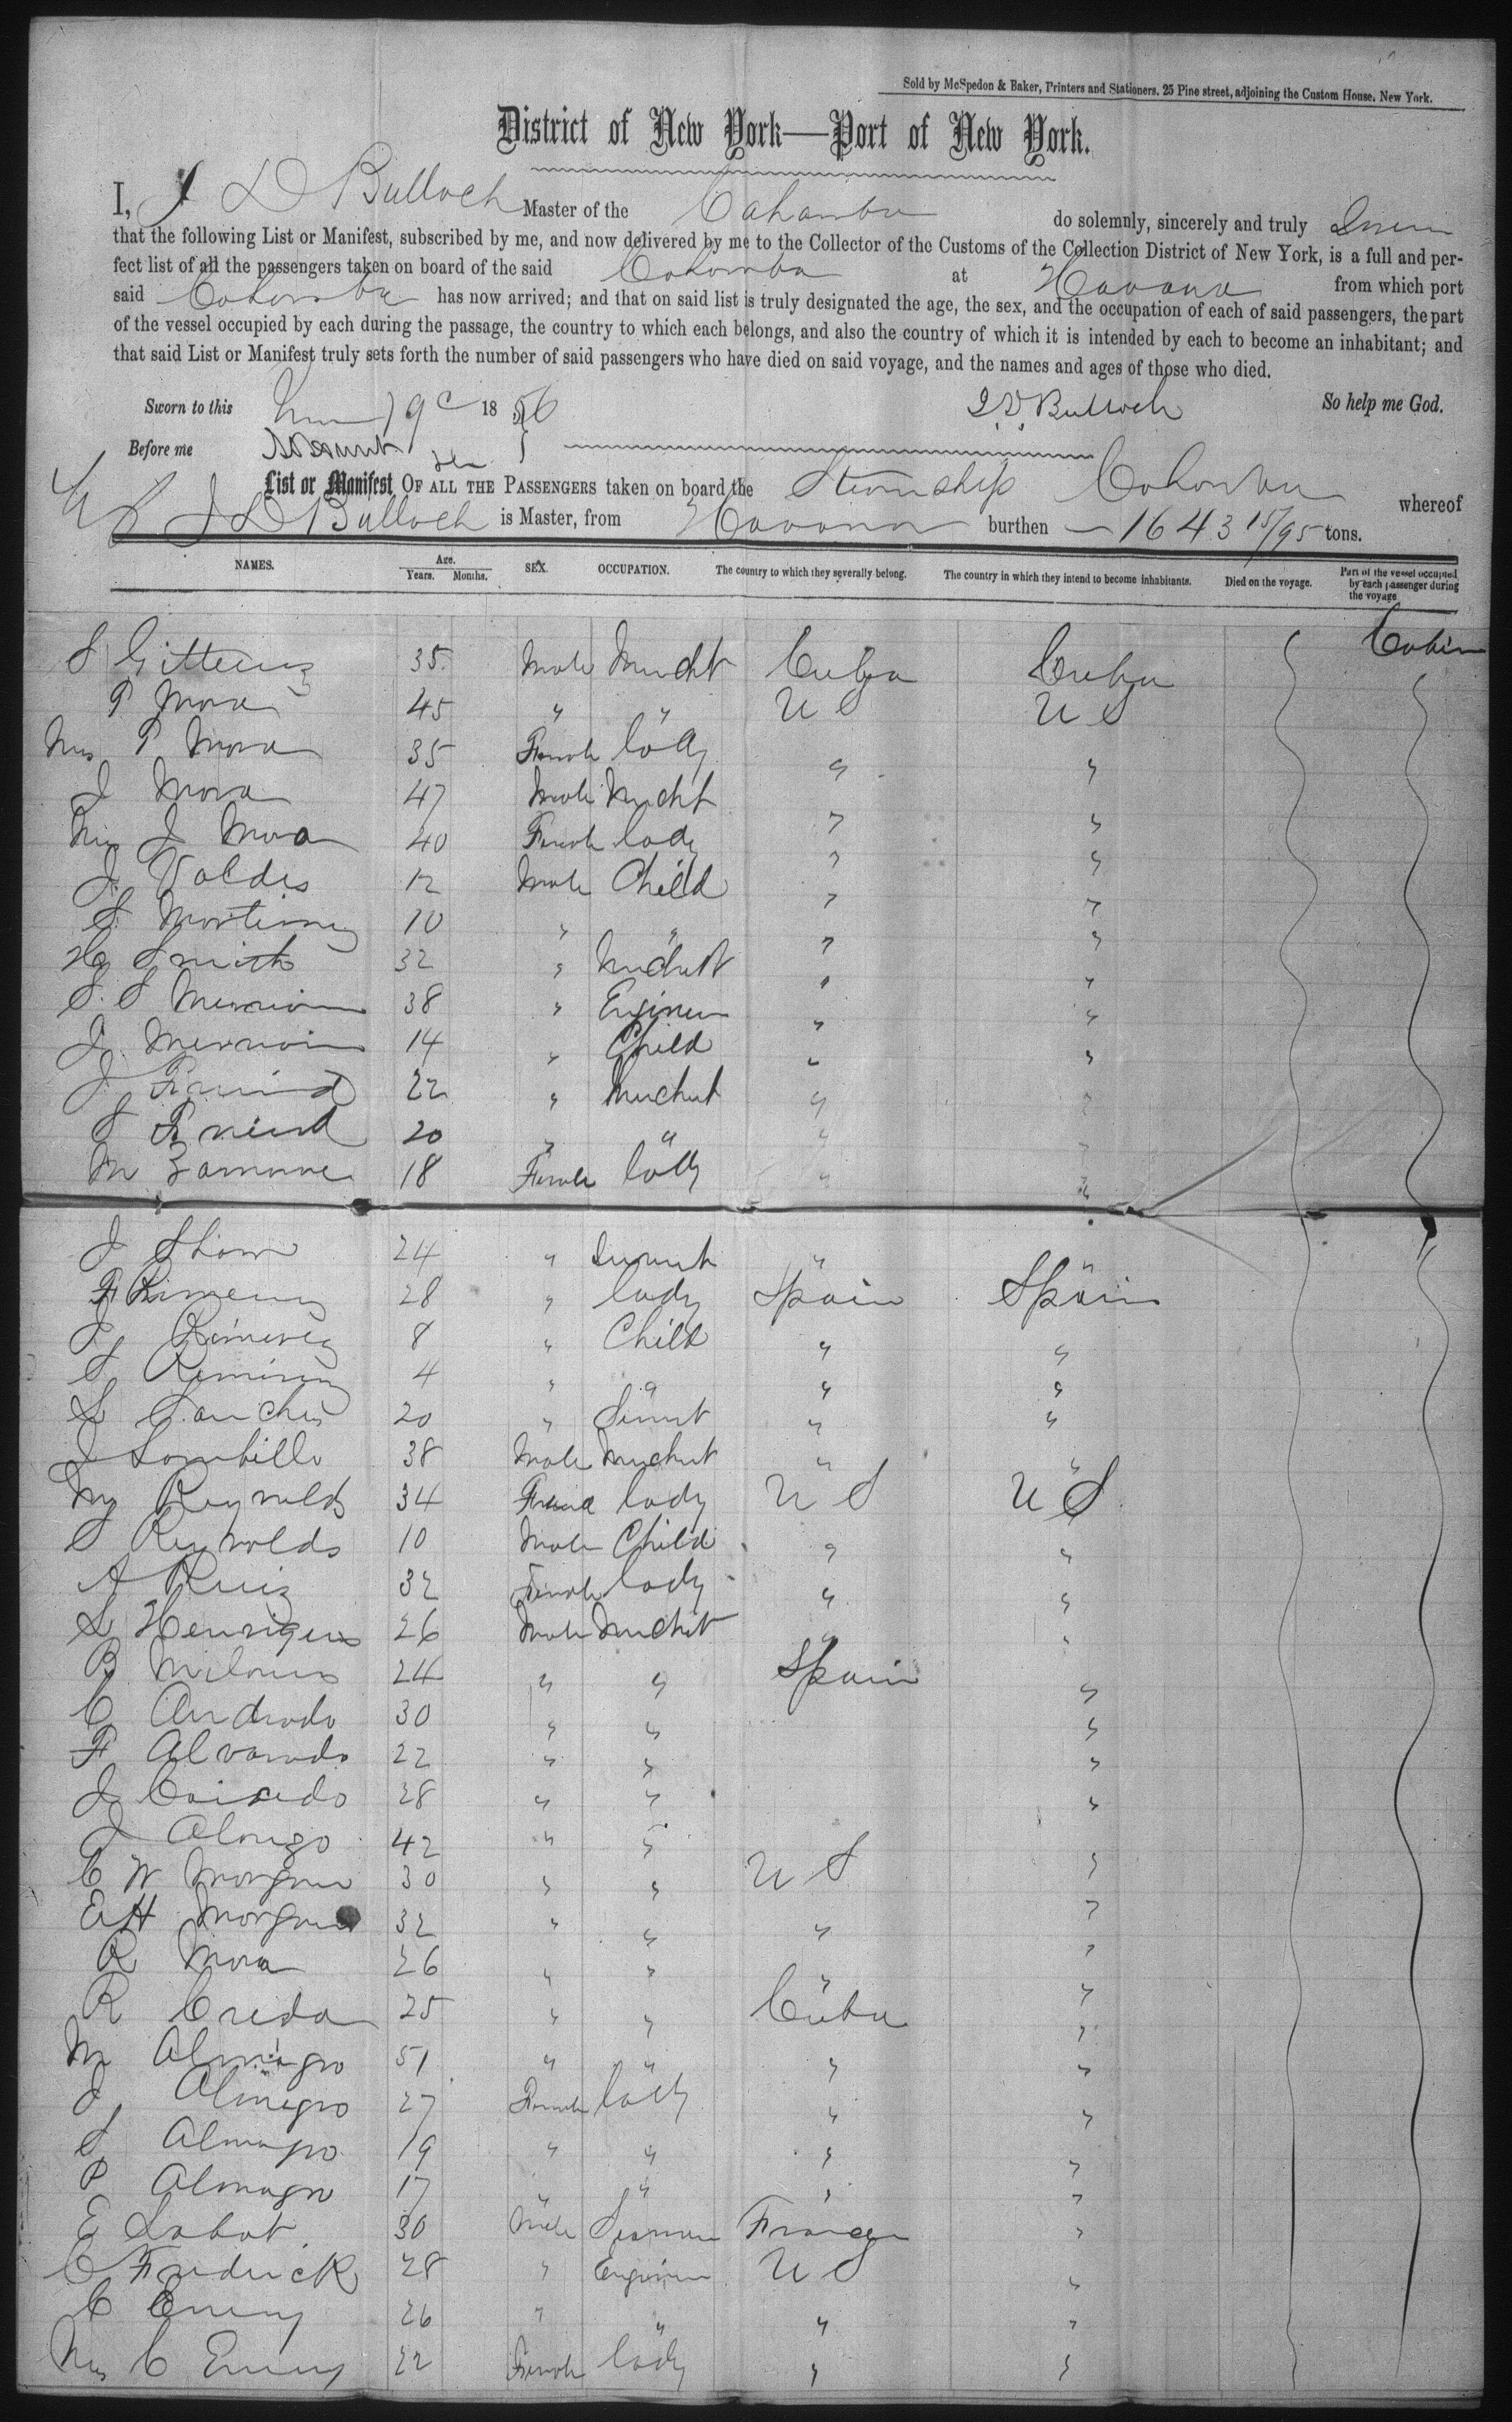 Sold by McSpedon & Baker, Printers and Stationers. 25 Pine street, adjoining the Custom House, New York.
District of New York—Port of New York.
I, J D Bulloch Master of the Cahawba do solemnly, sincerely and truly Swear
that the following List or Manifest, subscribed by me, and now delivered by me to the Collector of the Customs of the Collection District of New York, is a full and per-
fect list of all the passengers taken on board of the said Cahawba at Havana from which port
said Cahawba has now arrived; and that on said list is truly designated the age, the sex, and the occupation of each of said passengers, the part
of the vessel occupied by each during the passage, the country to which each belongs, and also the country of which it is intended by each to become an inhabitant; and
that said List or Manifest truly sets forth the number of said passengers who have died on said voyage, and the names and ages of those who died.
Sworn to this 19 1856 J. D. Bulloch So help me God.
Before me
List or Manifest OF ALL THE PASSENGERS taken on board the Steamship Cahawba whereof
J D Bulloch is Master, from Havana burthen — 1643 15/95 tons.
NAMES. Age. Years. Months. SEX. OCCUPATION. The country to which they severally belong. The country in which they intend to become inhabitants. Died on the voyage. Part of the vessel occupied by each passenger during the voyage
S 35 Male Mercht Cuba Cuba Cabin
P Mora 45 " " U S U S
Mrs P Mora 35 Female lady " "
J Mora 47 Male Mercht " "
Mrs J Mora 40 Female lady " "
J Valdes 12 Male Child " "
S 10 " " " "
H Smith 32 " Merchnt " "
S. S Merriam 38 " Engineer " "
J Merriam 14 " Child " "
J 22 " Merchnt " "
S 20 " " " "
M 18 Female lady " "
J Shaw 24 " Servant " "
F 28 " lady Spain Spain
J 8 " Child " "
S 4 " " " "
S Sanches 20 " Servnt " "
J 38 Male Merchnt " "
Mrs Reynolds 34 Female lady U S U S
S Reynolds 10 Male Child " "
A Ruiz 32 Female lady " "
S Henriques 26 Male Merchnt " "
B 24 " " Spain "
C Andrado 30 " " "
F Alvarado 22 " " "
J Caicedo 28 " " "
J Alonzo 42 " "
C W Morgan 30 " " U S "
E H Morgan 32 " " " "
R Mora 26 " " " "
R Creda 25 " " Cuba "
M Almagro 51 " " " "
J Almagro 27 Female lady " "
S Almagro 19 " " " "
P Almagro 17 " " " "
E Labat 30 Male Seaman France "
C Fredrick 28 " Engineer U S "
C Emery 26 " " " "
Mrs C Emery 22 Female lady " "